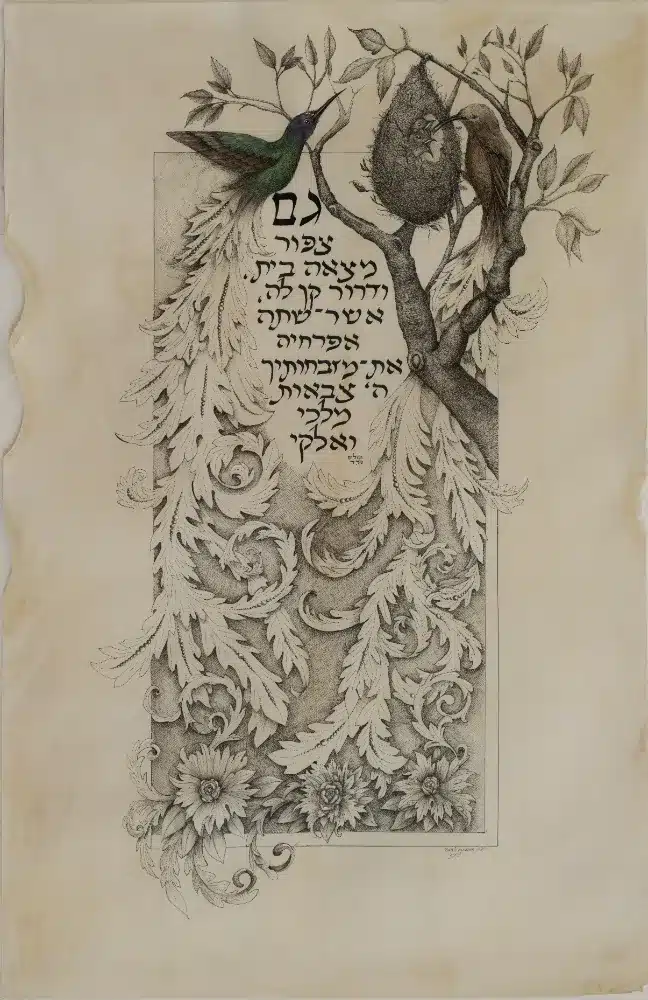 גם
צפור
מצאה בית,
ודרור קן לה,
אשר־שתה
אפרחיה
את־מזבחותיך
ה' צבאות
מלכי
ואלקי